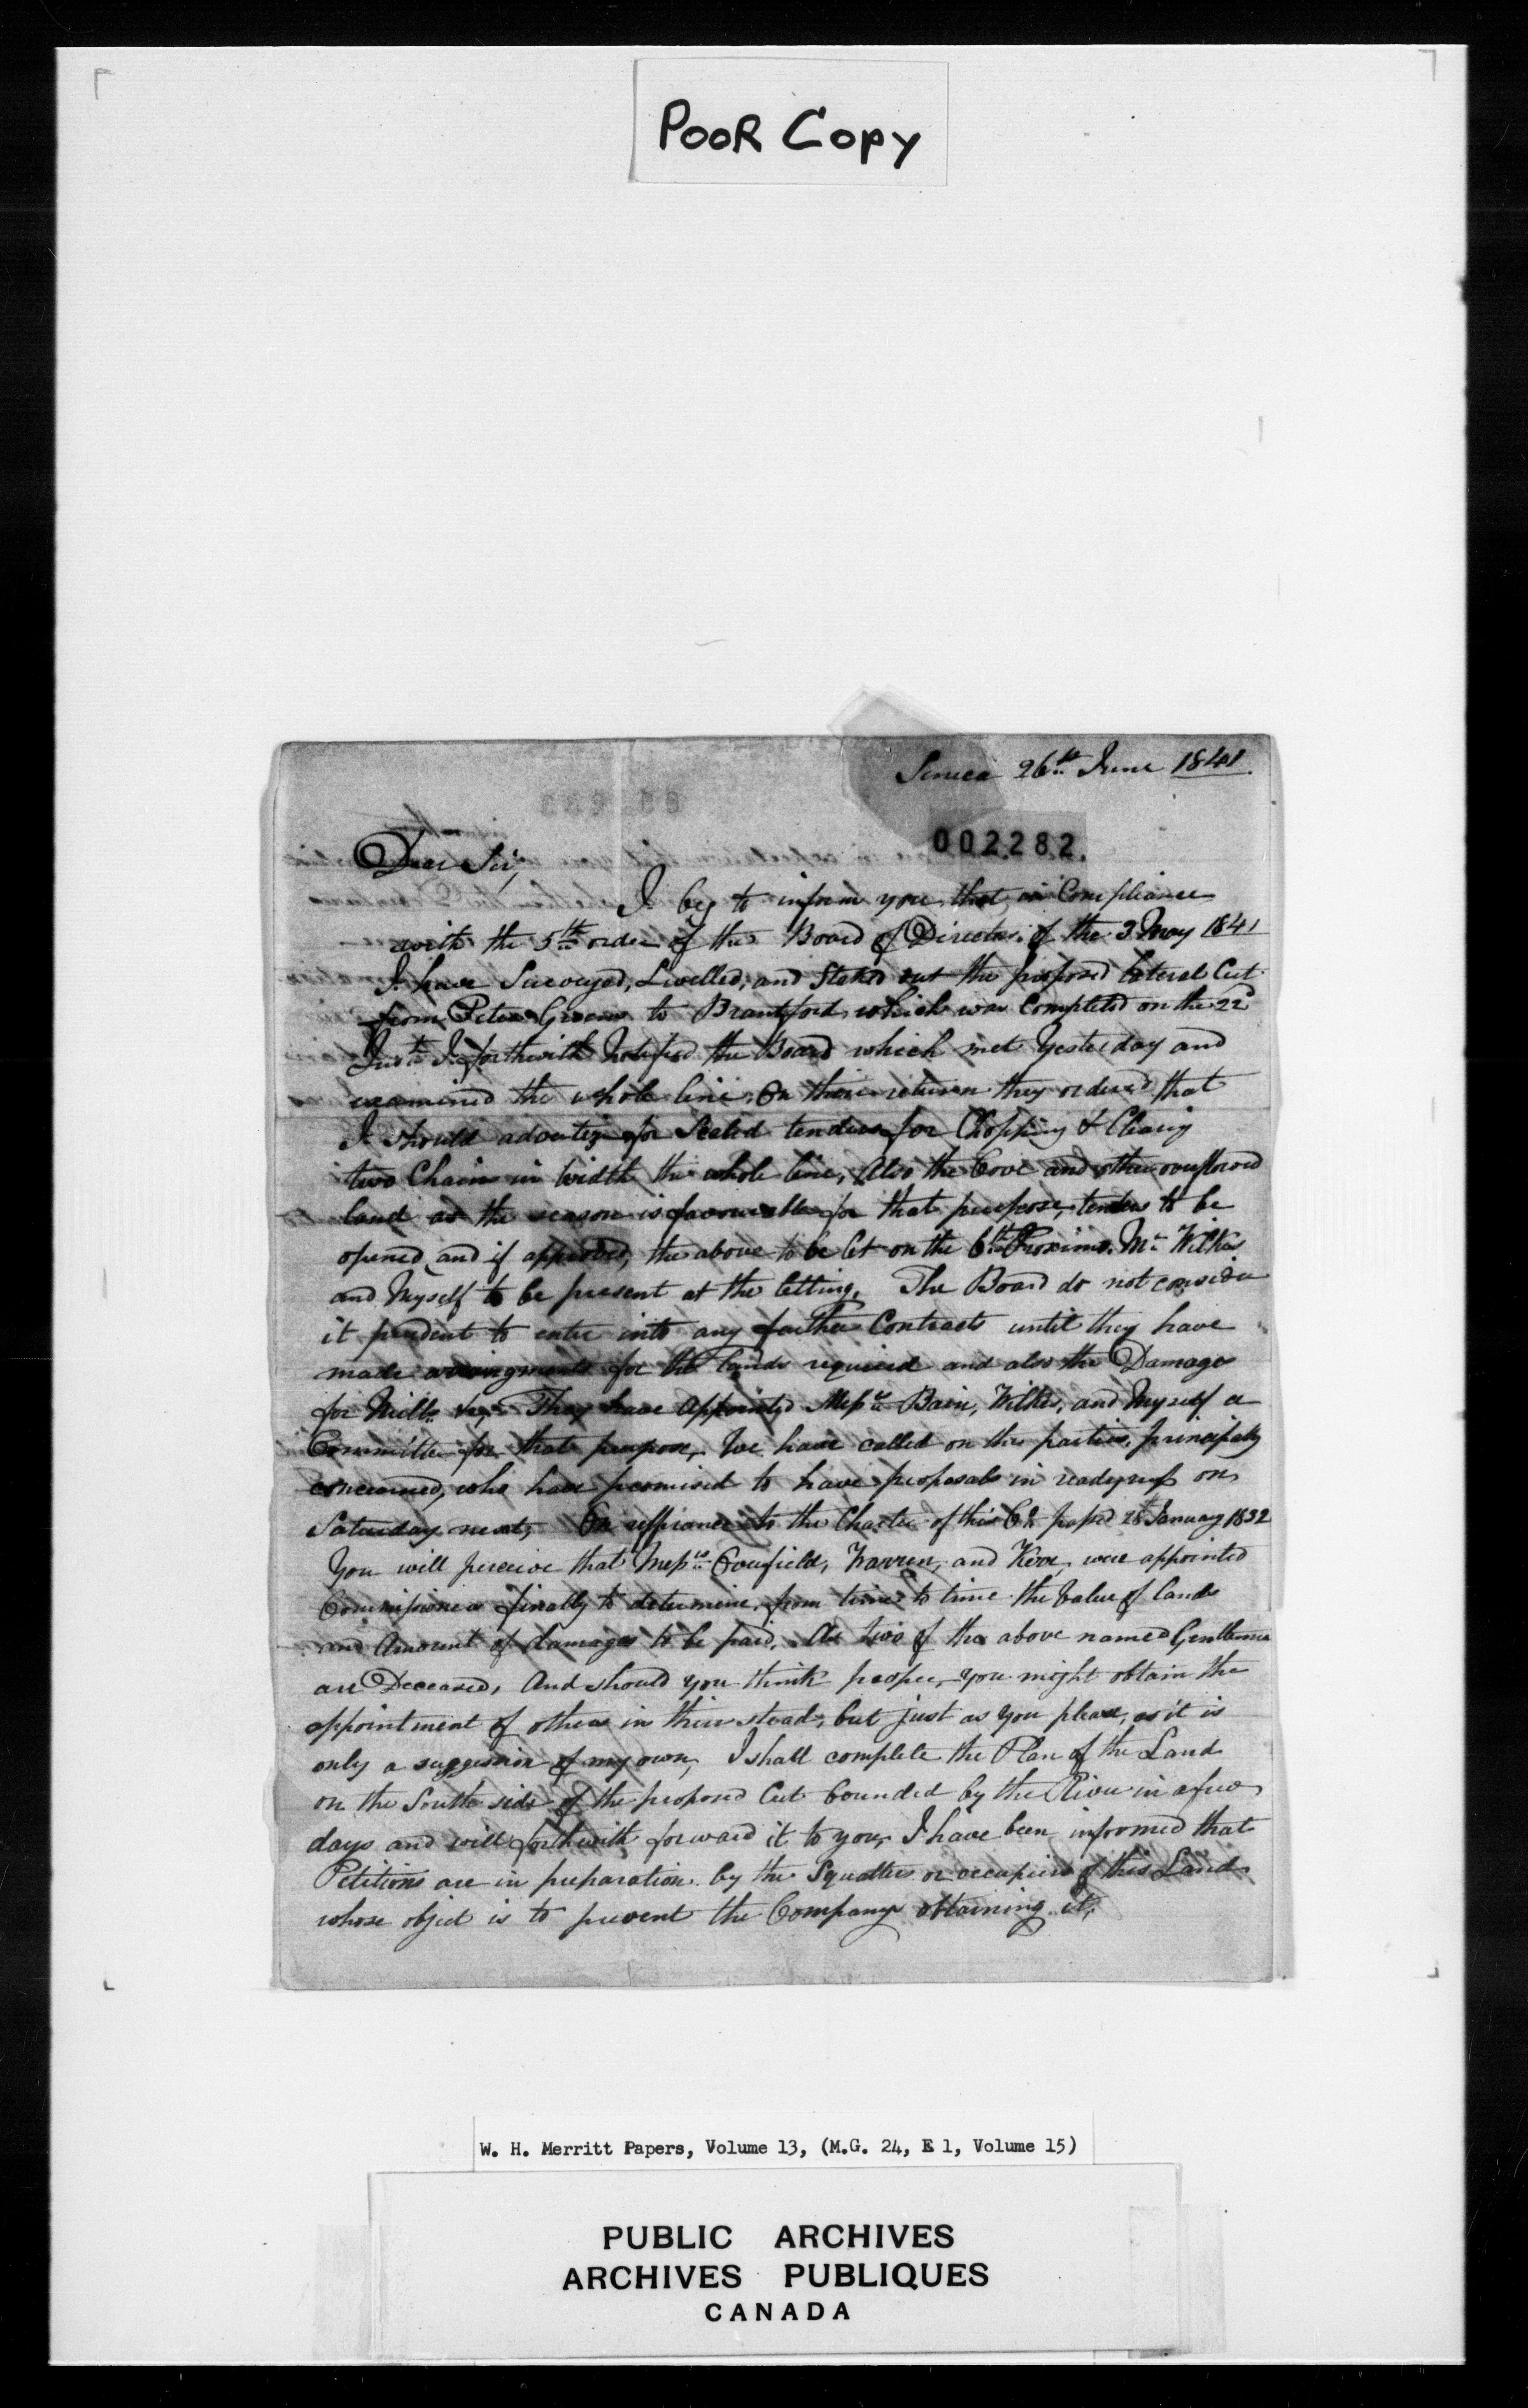 POOR COPY
Seneca 26th June 1841
002282.
Dear Sir,
I beg to inform you that in Compliance
with the 5th order of the Board of Directors of the 3 May 1841
I have Surveyed, Livelled, and Staked out the proposed lateral Cut
from Peter Greens to Brantford, which was Completed on the 22d
Inst. I forthwith Notified the Board which met Yesterday and
examined the whole line. On their return they ordered that
I should advertize for Sealed tenders for Chopping & Clearing
two Chains in Width the whole line, Also the Cove and other overflowed
land as the season is favourable for that purpose, tenders to be
opened and if approved, the above to be let on the 6th Proximo. Mr Wilkes
and Myself to be present at the letting. The Board do not consider
it prudent to enter into any farther Contracts until they have
made arrangments for the lands required and also the Damages
for Mills &c, They have Appointed Messrs Bain, Wilkes, and Myself a
Committee for that purpose, We have called on the parties, principally
concerned, who have promised to have proposals in readyness on
Saturday next, On refferance to the Charter of this Co. passed 28th January 1832
You will perceive that Messrs Warren, and Kerr, were appointed
Commissioners finally to determine from time to time the Value of lands
and Amount of damages to be paid. As two of the above named Gentlemen
are Deceased, And should you think proper, you might obtain the
appointment of others in their stead, but just as you please, as it is
only a suggession of my own, I shall complete the Plan of the Land
on the South side of the proposed Cut bounded by the River in a few
days and will forthwith forward it to you, I have been informed that
Petitions are in preparation by the Squatters or occupiers of this Land
whose object is to prevent the Company obtaining it,
W. H. Merritt Papers, Volume 13, (M.G. 24, E 1, Volume 15)
PUBLIC ARCHIVES
ARCHIVES PUBLIQUES
CANADA